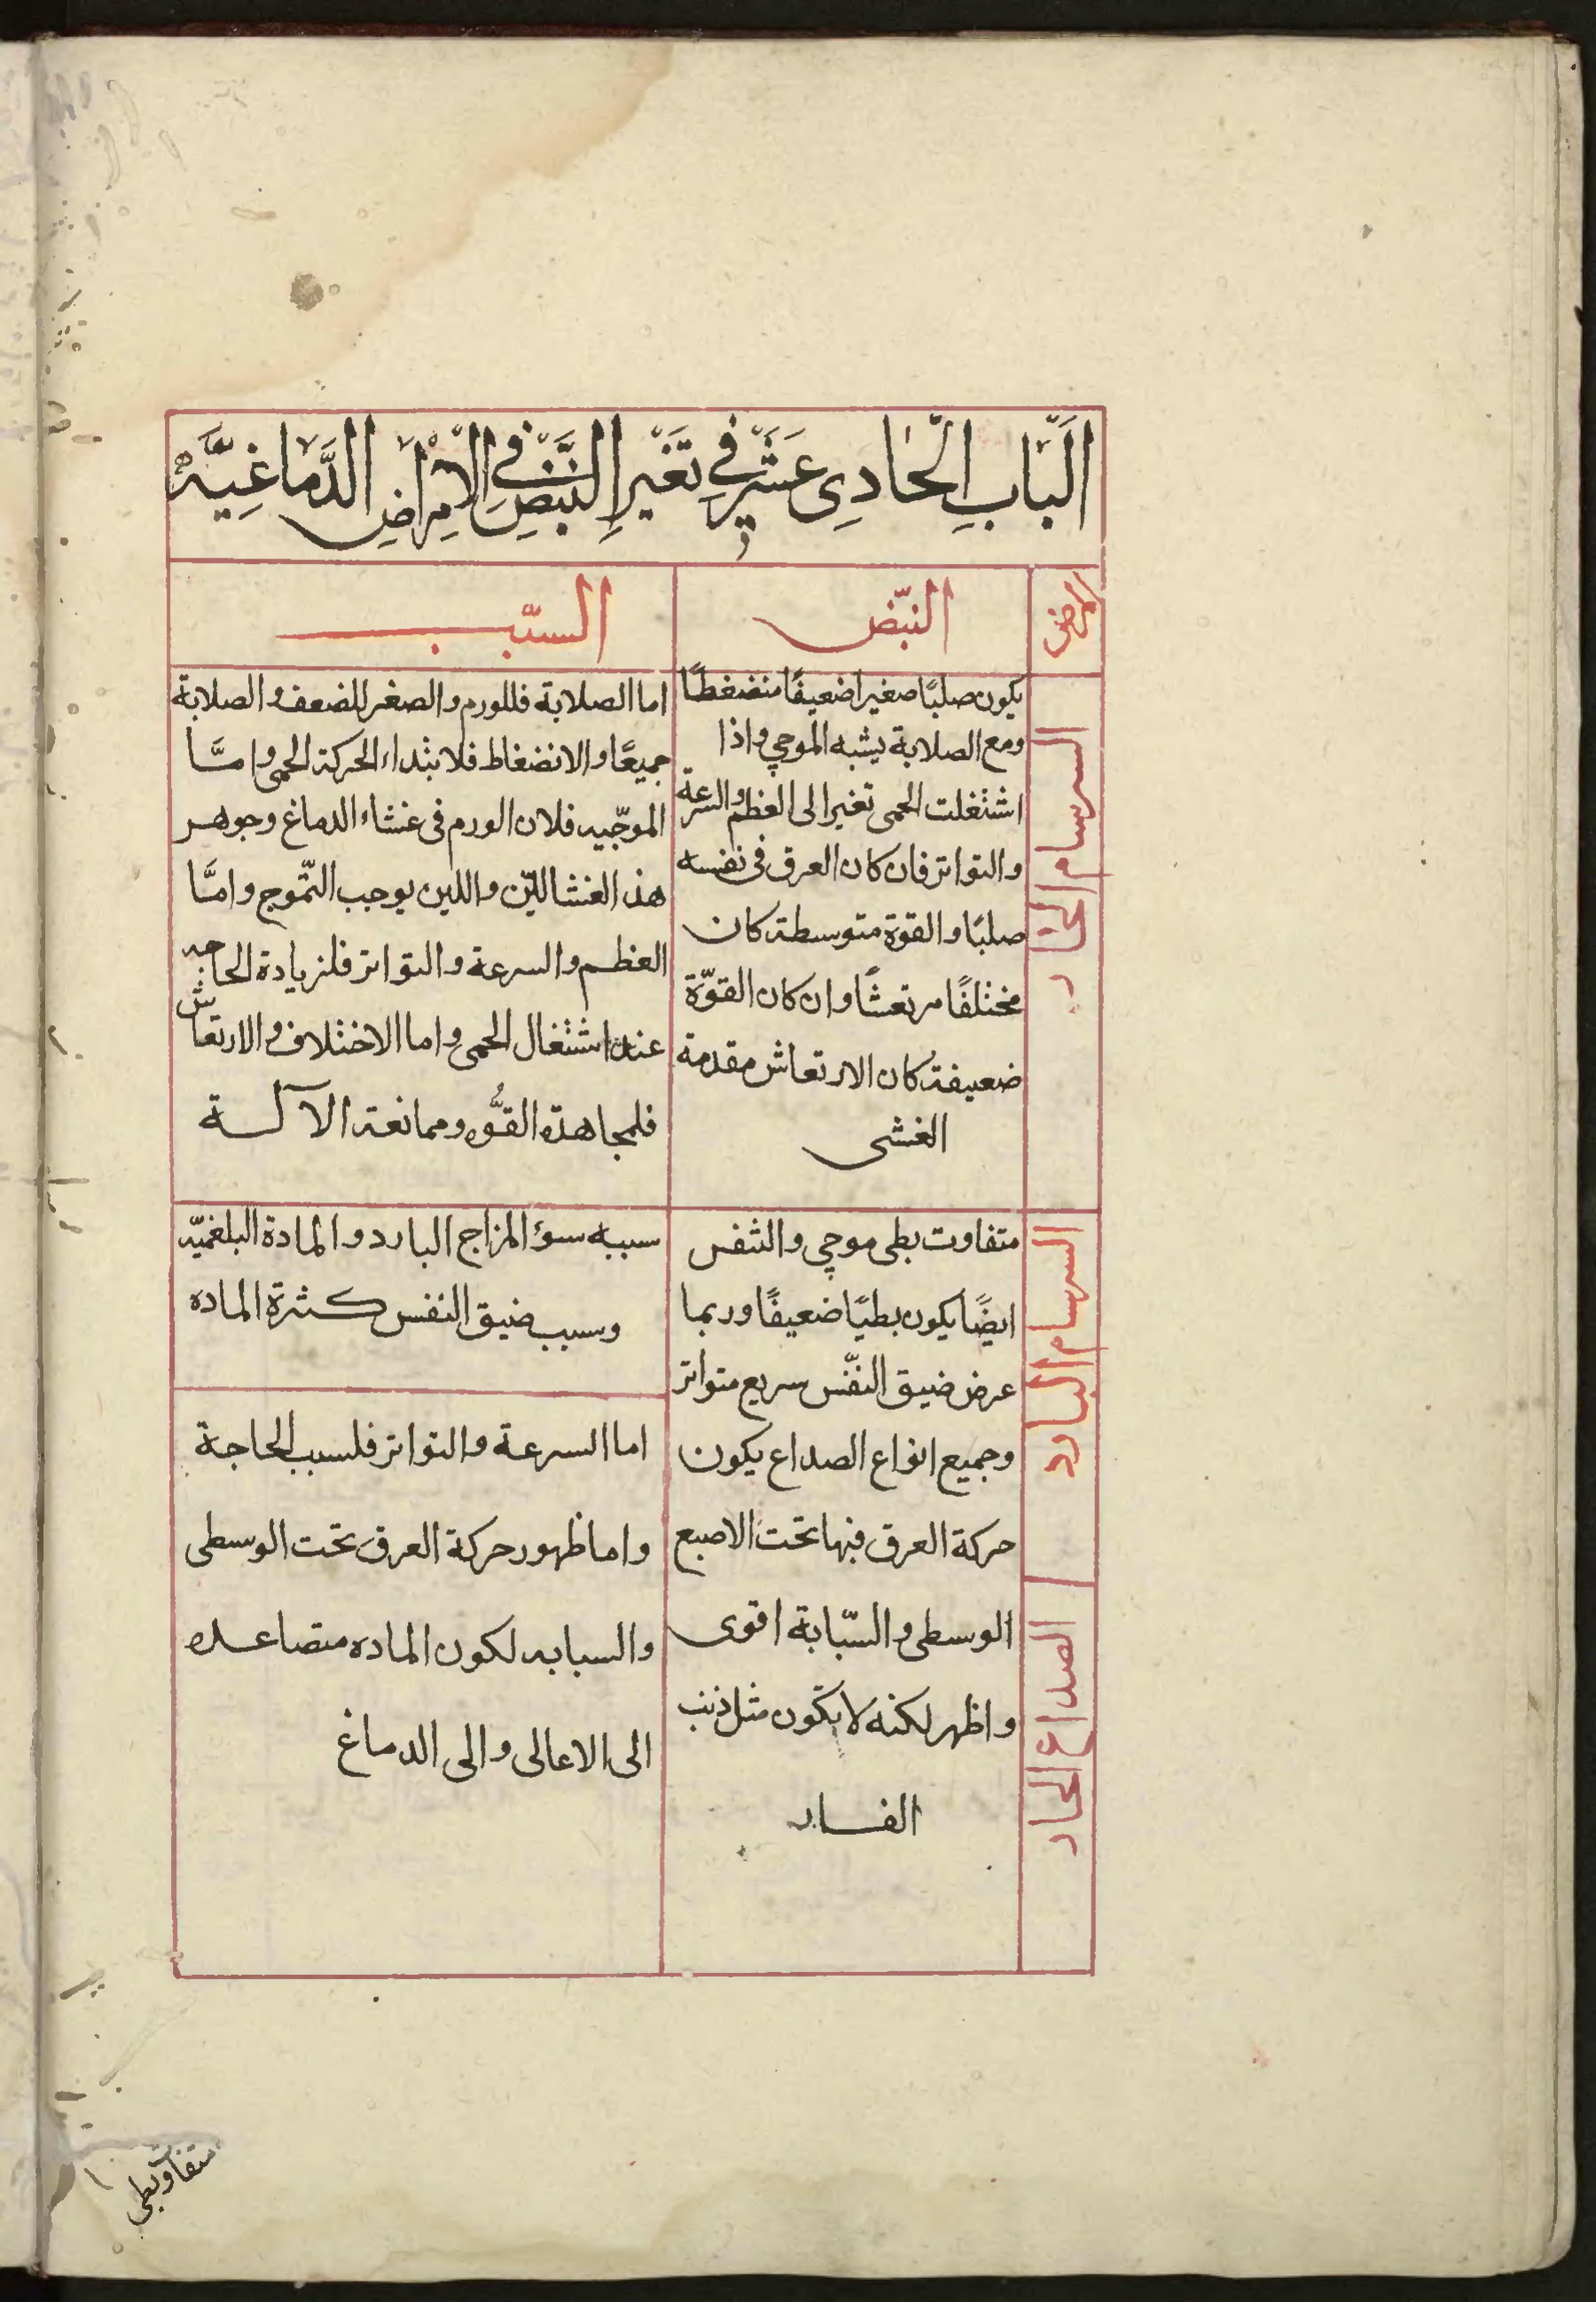 اَلْبَابِ الْحَادِي عَشَرَ فِي تَغَيِر النَّبَضِ فِي الْامراضِ الدَّمَاغِيَّه
المرض
النبّض
السبّب
السرسام الحار
يكون صلبًا صغيرا ضعيفًا منضغطًا
ومع الصلابة يشبه الموجي واذا
اشتغلت الحمى تغير الى العظم والسرعة
والتواتر فان كان العرق فى نفسه
صلبًا والقوة متوسطة كان
مختلفًا مرتعشًا وان كان القوّة
ضعيفة كان الارتعاش مقدمة
الغشى
اما الصلابة فللورم والصغر للضعف والصلابة
جميعًا والانضغاط فلابتداء الحركة الحمى وامَّا
الموجّيه فلان الورم فى غشاء الدماغ وجوهر
هذا الغشا الليّن واللين يوجب التّموج وامَّا
العظم والسرعة والتواتر فلزيادة الحاجه
عند اشتغال الحمى واما الاختلاف والارتعاش
فلمجاهدة القوُّه وممانعة الآلة
السرسام البارد
متفاوت بطى موجي والتنفس
ايضًا يكون بطيًا ضعيفًا وربما
عرض ضيق النفّس سريع متواتر
سببه سوء المزاج البارد والمادة البلغميّه
وسبب ضيق النفس كثرة الماده
الصداع الحاد
وجميع انواع الصداع يكون
حركة العرق فيها تحت الاصبع
الوسطى والسّبابة اقوى
واظهر لكنه لا يكون مثل ذنب
الفار
اما السرعة والتواتر فلسبب الحاجة
واما ظهور حركة العرق تحت الوسطى
والسبابه لكون الماده متصاعده
الى الاعالى والى الدماغ
متفاوت بطى